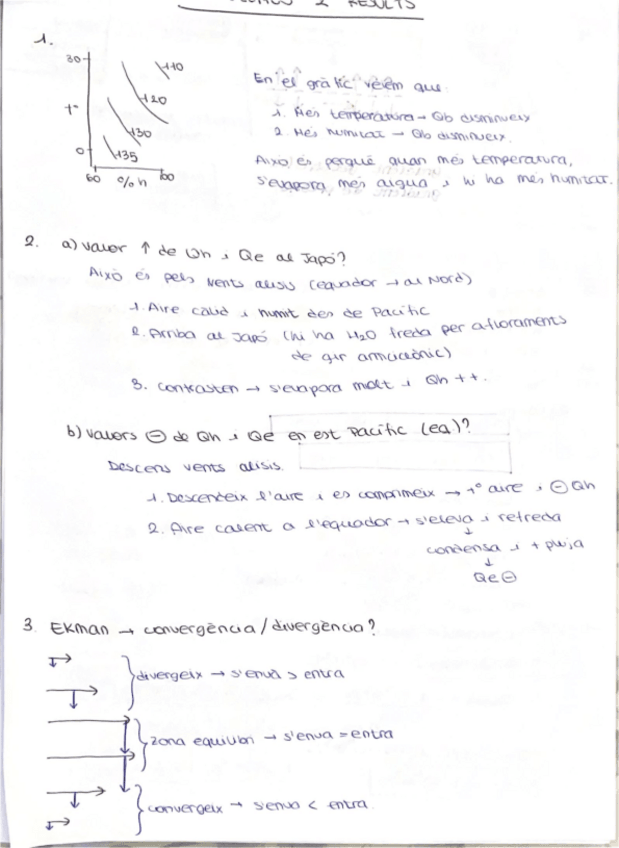 2 RESULTS
1.
30
t°
0
60 % h 100
110
120
130
135
En el gràfic veiem que:
1. Més temperatura → Qb disminueix
2. Més humitat → Qb disminueix.
Això és perquè quan més temperatura,
s'evapora més aigua i hi ha més humitat.
2. a) Valor ↑ de Qh i Qe al Japó?
Això és pels vents alisis (equador → al Nord)
1. Aire càlid i humit des de Pacífic
2. Arriba al Japó (hi ha H2O freda per afloraments
de gir anticiclònic)
3. Contrasten → s'evapora molt i Qh ++.
b) Valors ⊖ de Qh i Qe en est Pacífic (eq)?
Descens vents alisis.
1. Descendeix l'aire i es comprimeix → +° aire i ⊖Qh
2. Aire calent a l'equador → s'eleva i refreda
↓
condensa i + pluja
↓
Qe⊖
3. EKMAN → convergència / divergència?
divergeix → s'envà > entra
zona equilibri → s'envà = entra
convergeix → s'envà < entra.